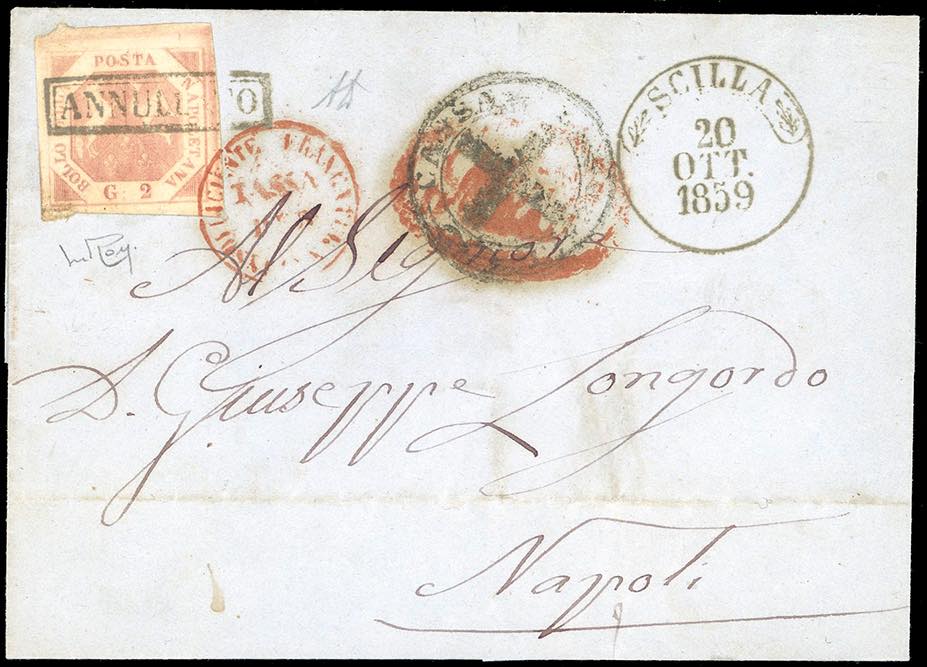 POSTA
NAPOLETANA
BOLLO
G. 2
ANNULLATO
SCILLA
20
OTT.
1859
Al Signore
D. Giuseppe Longordo
Napoli